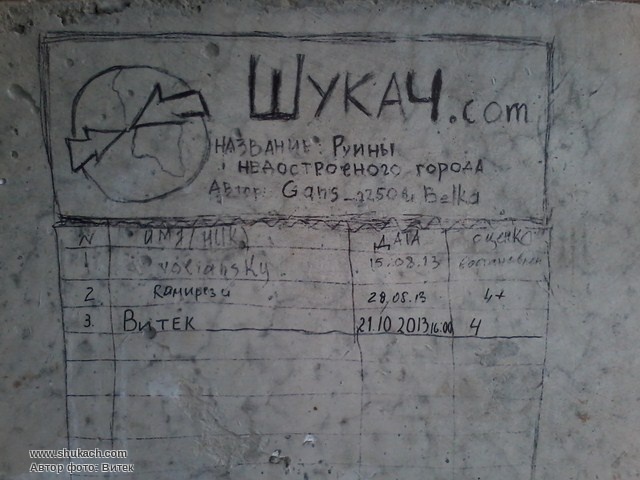 ШУКАЧ.com
НАЗВАНИЕ: Руины
недостроенного города
Автор: Gans_2250 & Belka
N имя(ник) ДАТА оценка
1 voliansky 15.08.13
2 Рамирези 28.08.13 4+
3. Витек 21.10.2013 16:00 4
www.shukach.com
Автор фото: Витек